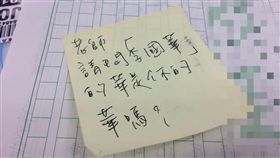 老師
請問「李國華」
的華是你的
華嗎？